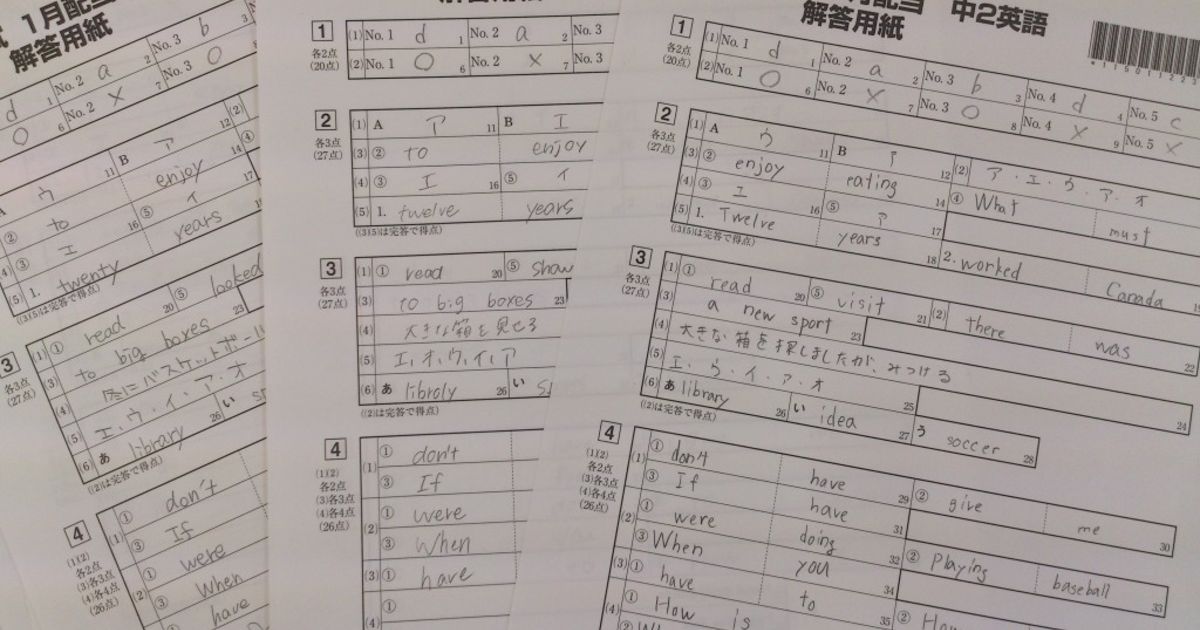 1月配当
解答用紙
No. 3 b
d 1 No. 2 a 2
No. 2 X 7 No. 3 O
O 6
B ア 12 (2)
ウ 11 enjoy 14 ④
② to ⑤ イ 17
(4) ③ エ 16 years
(5) 1. twenty
((3)(5)は完答で得点)
3
各3点
(27点)
(1) ① read 20 ⑤ looked
(3) to big boxes 23
(4)
(5) エ.ウ.イ.ア.オ
(6) あ library 26 い
((2)は完答で得点)
4
(1)(2)
各2点
(3)各3点
(4)各4点
(26点)
(1) ① don't
③ If
(2) ① were
③ When
have
解答用紙
1
各2点
(20点)
(1) No. 1 d 1 No. 2 a 2 No. 3
(2) No. 1 O 6 No. 2 × 7 No. 3
2
各3点
(27点)
(1) A ア 11 B エ
(3) ② to enjoy
(4) ③ エ 16 ⑤ イ
(5) 1. twelve years
((3)(5)は完答で得点)
3
各3点
(27点)
(1) ① read 20 ⑤ show
(3) to big boxes 23
(4) 大きな箱を見せる
(5) エ,オ,ウ,イ,ア
(6) あ libroly 26 い
((2)は完答で得点)
4
(1)(2)
各2点
(3)各3点
(4)各4点
(26点)
(1) ① don't
③ If
(2) ① were
③ When
(3) ① have
(4) ①
月配当 中2英語
解答用紙
1
各2点
(20点)
(1) No. 1 d 1 No. 2 a 2 No. 3 b 3 No. 4 d 4 No. 5 c
(2) No. 1 O 6 No. 2 X 7 No. 3 O 8 No. 4 X 9 No. 5 X
2
各3点
(27点)
(1) A ウ 11 B ア 12 (2) ア・エ・ウ・ア・オ
(3) ② enjoy eating 14 ④ What must
(4) ③ エ 16 ⑤ ア 17
(5) 1. Twelve years 18 2. worked Canada 19
((3)(5)は完答で得点)
3
各3点
(27点)
(1) ① read 20 ⑤ visit 21 (2) there was 22
(3) a new sport 23
(4) 大きな箱を探しましたが、みつける 24
(5) エ・ウ・イ・ア・オ 25
(6) あ library 26 い idea 27 う soccer 28
((2)は完答で得点)
4
(1)(2)
各2点
(3)各3点
(4)各4点
(26点)
(1) ① don't have 29 ② give me 30
③ If have 31
(2) ① were doing 32 ② Playing baseball 33
③ When you 34
(3) ① have to 35 ② How
(4) ① How is
②